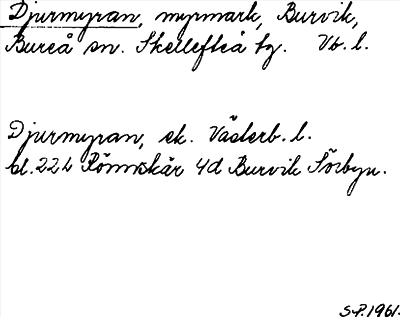 Djurmyran, myrmark, Burvik,
Bureå sn. Skellefteå tg. Vb. l.
Djurmyran, ek. Västerb. l.
bl. 22 L Rönnskär 4d Burvik Sörbyn.
S.P. 1961.